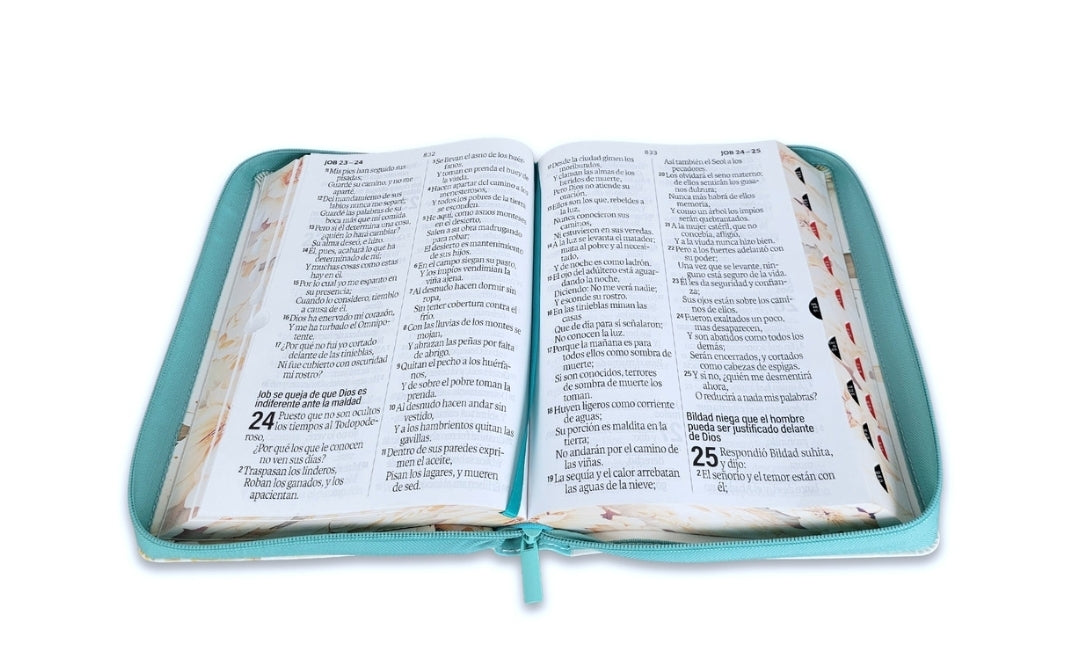 JOB 23–24
832
11 Mis pies han seguido sus
pisadas;
Guardé su camino, y no me
aparté.
12 Del mandamiento de sus
labios nunca me separé;
Guardé las palabras de su
boca más que mi comida.
13 Pero si él determina una cosa,
¿quién lo hará cambiar?
Su alma deseó, e hizo.
14 Él, pues, acabará lo que ha
determinado de mí;
Y muchas cosas como estas
hay en él.
15 Por lo cual yo me espanto en
su presencia;
Cuando lo considero, tiemblo
a causa de él.
16 Dios ha enervado mi corazón,
Y me ha turbado el Omnipo-
tente.
17 ¿Por qué no fui yo cortado
delante de las tinieblas,
Ni fue cubierto con oscuridad
mi rostro?
Job se queja de que Dios es
indiferente ante la maldad
24 Puesto que no son ocultos
los tiempos al Todopode-
roso,
¿Por qué los que le conocen
no ven sus días?
2 Traspasan los linderos,
Roban los ganados, y los
apacientan.
3 Se llevan el asno de los huér-
fanos,
Y toman en prenda el buey de
la viuda.
4 Hacen apartar del camino a los
menesterosos,
Y todos los pobres de la tierra
se esconden.
5 He aquí, como asnos monteses
en el desierto,
Salen a su obra madrugando
para robar;
El desierto es mantenimiento
de sus hijos.
6 En el campo siegan su pasto,
Y los impíos vendimian la
viña ajena.
7 Al desnudo hacen dormir sin
ropa,
Sin tener cobertura contra el
frío.
8 Con las lluvias de los montes se
mojan,
Y abrazan las peñas por falta
de abrigo.
9 Quitan el pecho a los huérfa-
nos,
Y de sobre el pobre toman la
prenda.
10 Al desnudo hacen andar sin
vestido,
Y a los hambrientos quitan las
gavillas.
11 Dentro de sus paredes expri-
men el aceite,
Pisan los lagares, y mueren
de sed.
833
JOB 24–25
12 Desde la ciudad gimen los
moribundos,
Y claman las almas de los
heridos de muerte,
Pero Dios no atiende su
oración.
13 Ellos son los que, rebeldes a
la luz,
Nunca conocieron sus
caminos,
Ni estuvieron en sus veredas.
14 A la luz se levanta el matador;
mata al pobre y al necesi-
tado,
Y de noche es como ladrón.
15 El ojo del adúltero está aguar-
dando la noche,
Diciendo: No me verá nadie;
Y esconde su rostro.
16 En las tinieblas minan las
casas
Que de día para sí señalaron;
No conocen la luz.
17 Porque la mañana es para
todos ellos como sombra de
muerte;
Si son conocidos, terrores
de sombra de muerte los
toman.
18 Huyen ligeros como corriente
de aguas;
Su porción es maldita en la
tierra;
No andarán por el camino de
las viñas.
19 La sequía y el calor arrebatan
las aguas de la nieve;
Así también el Seol a los
pecadores.
20 Los olvidará el seno materno;
de ellos sentirán los gusa-
nos dulzura;
Nunca más habrá de ellos
memoria,
Y como un árbol los impíos
serán quebrantados.
21 A la mujer estéril, que no
concebía, afligió,
Y a la viuda nunca hizo bien.
22 Pero a los fuertes adelantó con
su poder;
Una vez que se levante, nin-
guno está seguro de la vida.
23 Él les da seguridad y confian-
za;
Sus ojos están sobre los cami-
nos de ellos.
24 Fueron exaltados un poco,
mas desaparecen,
Y son abatidos como todos los
demás;
Serán encerrados, y cortados
como cabezas de espigas.
25 Y si no, ¿quién me desmentirá
ahora,
O reducirá a nada mis palabras?
Bildad niega que el hombre
pueda ser justificado delante
de Dios
25 Respondió Bildad suhita,
y dijo:
2 El señorío y el temor están con
él;